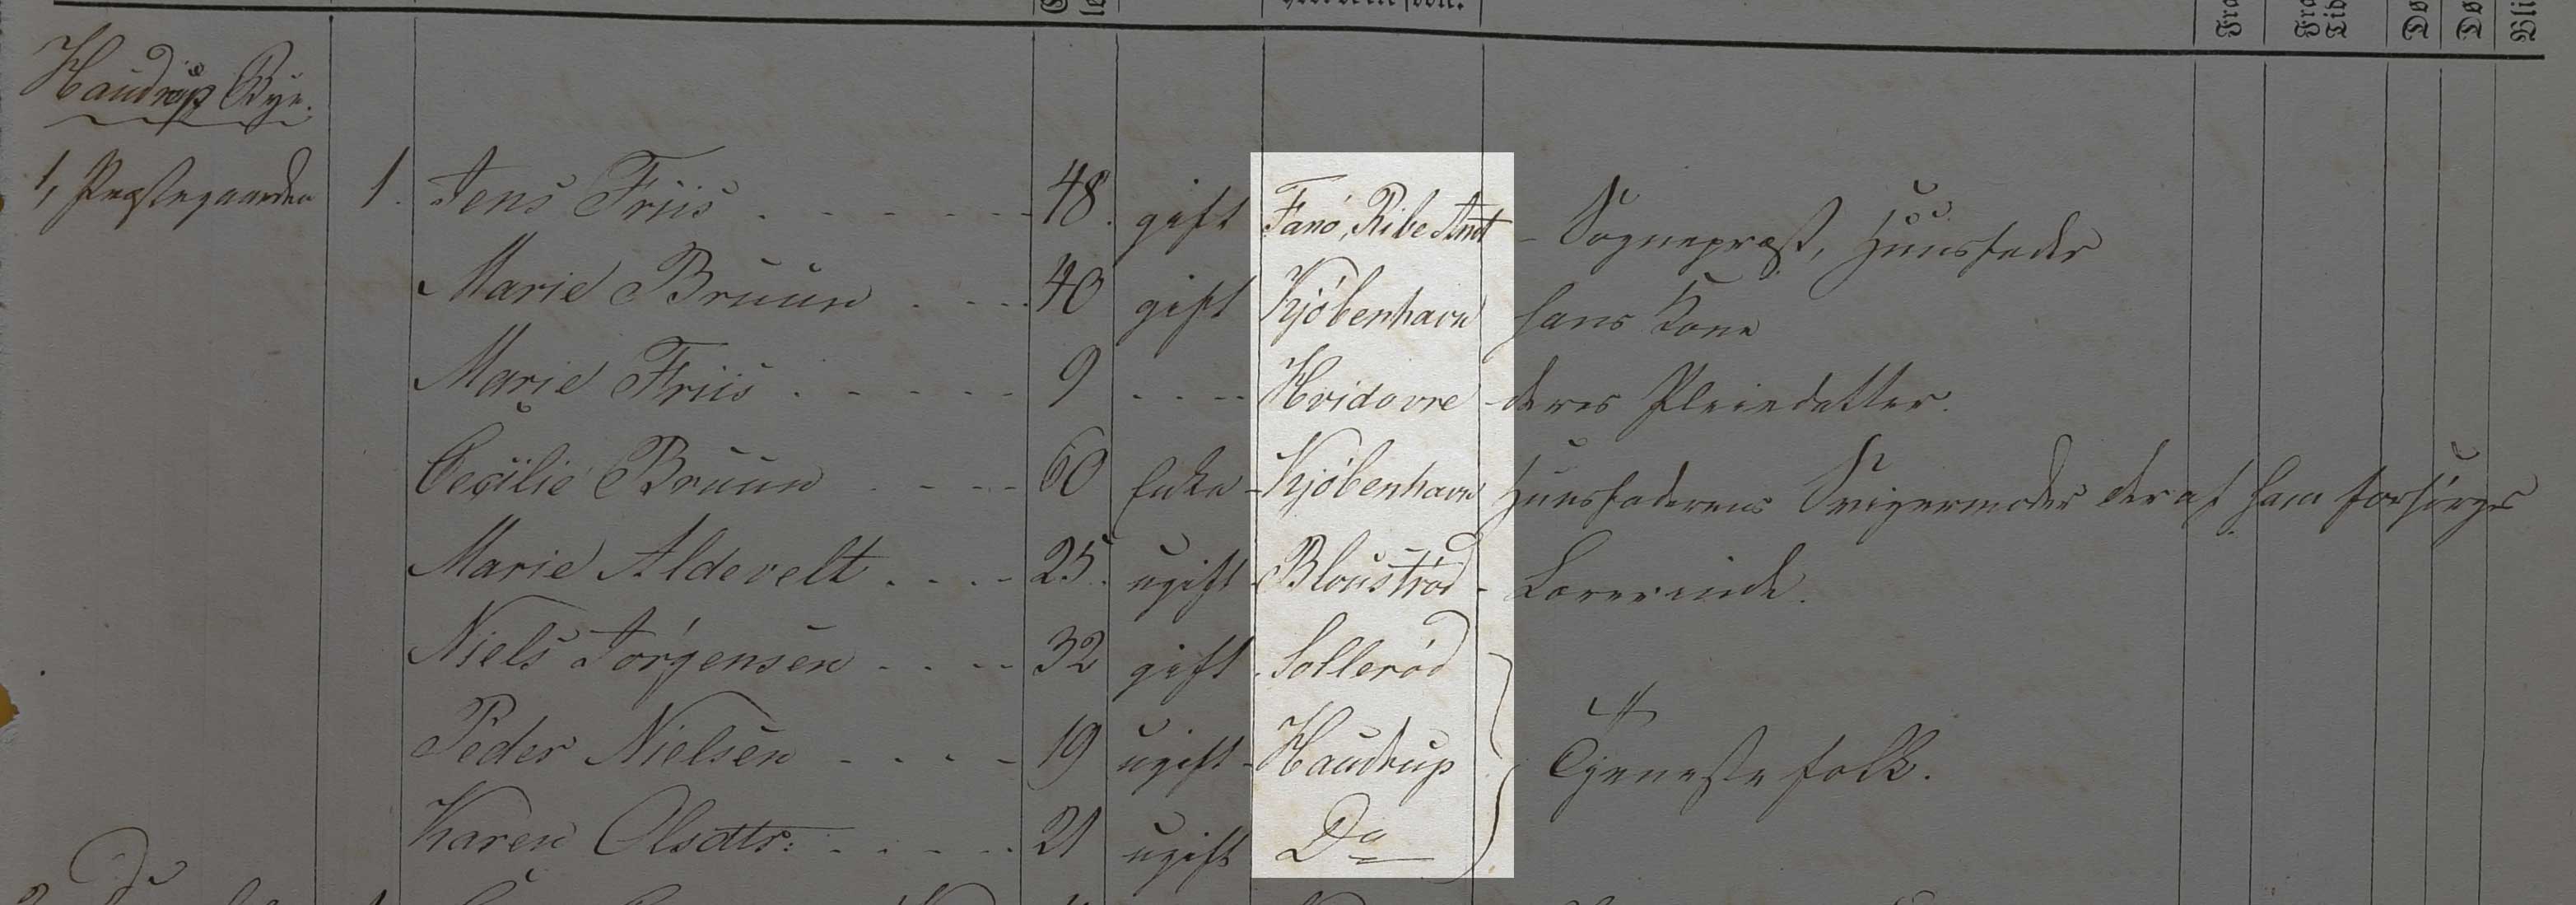 Haudrup Bye.
1, Præstegaarden 1. Jens Friis 48. gift Fanö, Ribe Amt - Sognepræst, Huusfader
Marie Bruun 40 gift Kjöbenhavn hans Kone
Marie Friis 9 Hvidovre - deres Pleiedatter.
Cecilie Bruun 60 Enke - Kjöbenhavn Huusfaderens Svigermoder der af ham forsörges
Marie Aldevelt 25. ugift - Blouströd - Lærerinde.
Niels Jörgensen 32 gift Sölleröd
Peder Nielsen 19 ugift - Haudrup Tjenestefolk.
Karen Olsdtr: 21 ugift Do